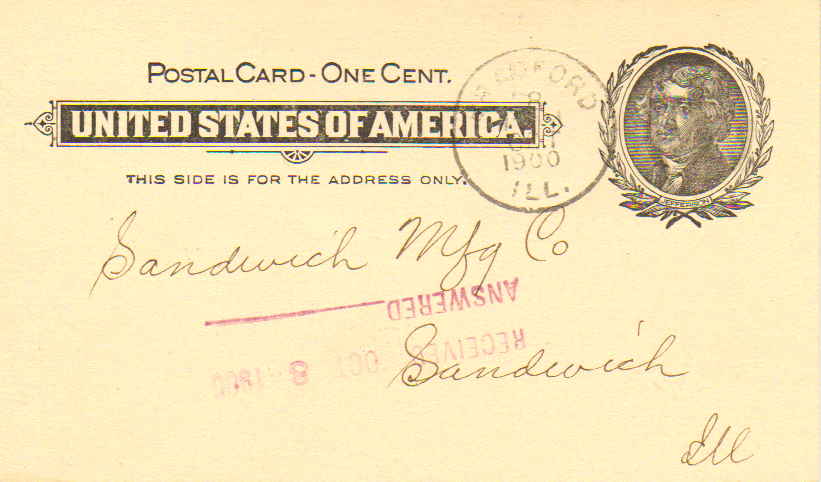 POSTAL CARD - ONE CENT.
UNITED STATES OF AMERICA.
THIS SIDE IS FOR THE ADDRESS ONLY.
1900
ILL.
JEFFERSON
Sandwich Mfg Co
ANSWERED
RECEIVED OCT 8 1900
Sandwich
Ill